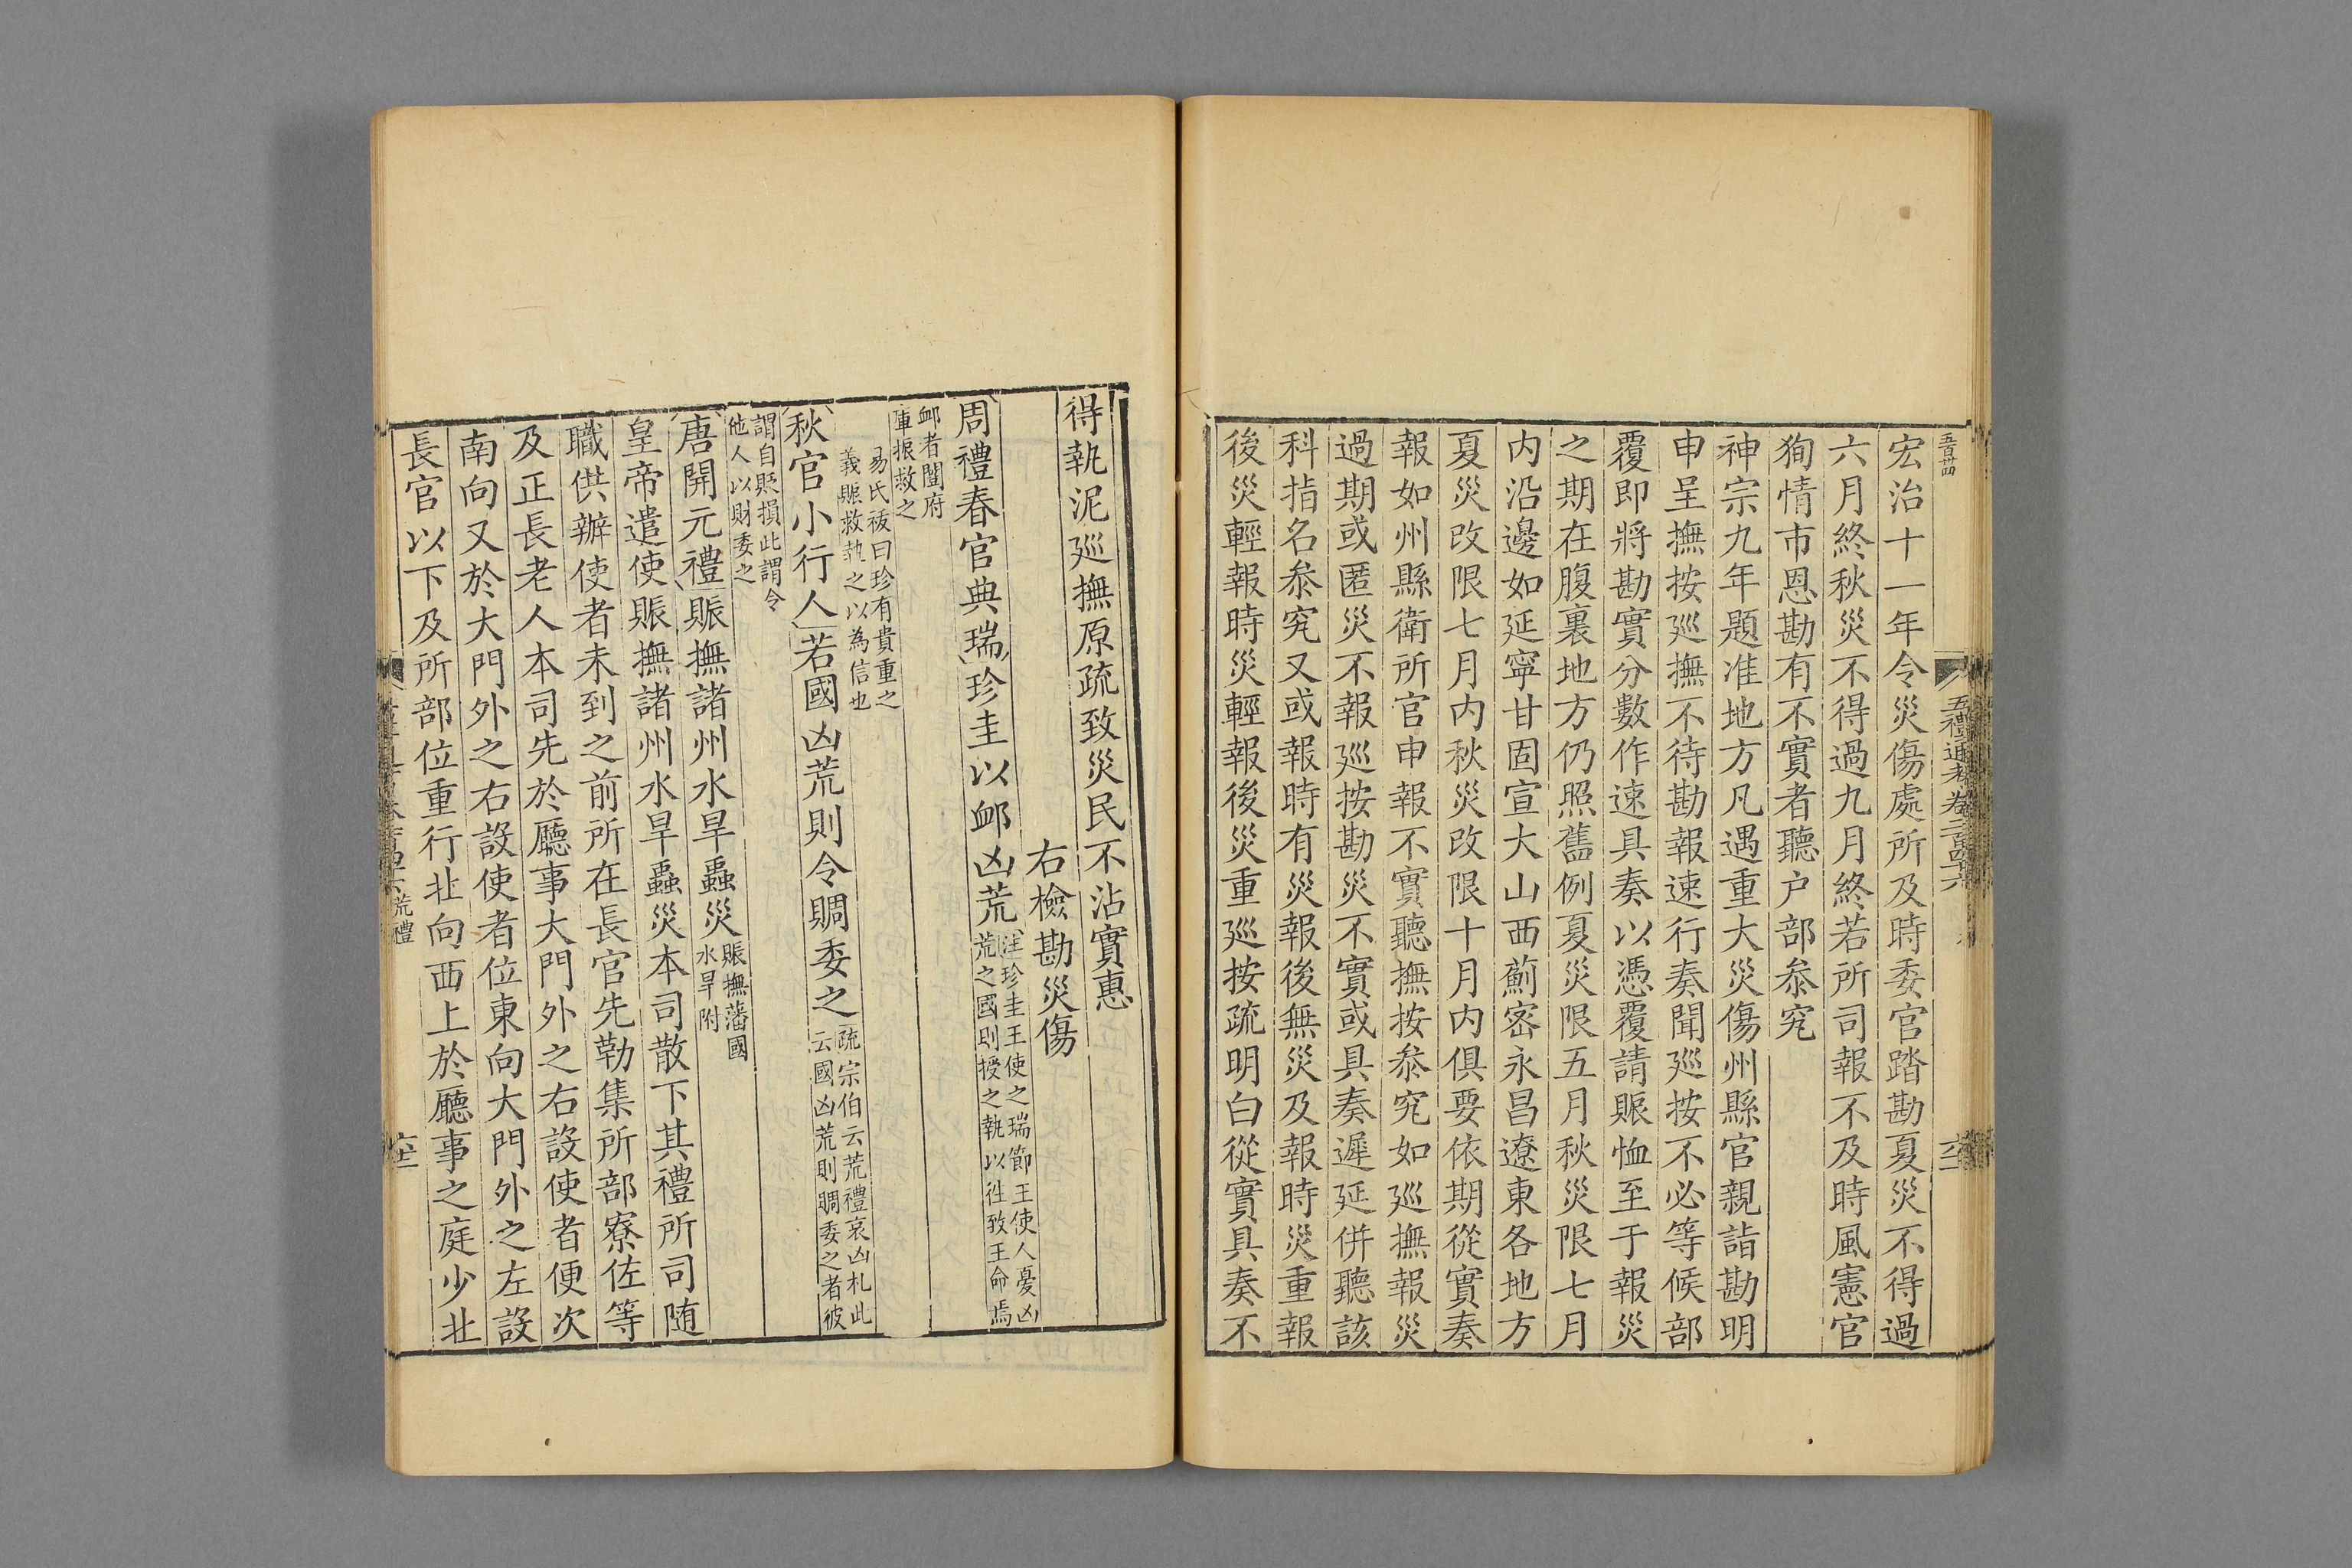 五百廿四
五禮通考卷二百四十六
宏治十一年令災傷處所及時委官踏勘夏災不得過
六月終秋災不得過九月終若所司報不及時風憲官
狥情市恩勘有不實者聽户部叅究
神宗九年題准地方凡遇重大災傷州縣官親詣勘明
申呈撫按廵撫不待勘報速行奏聞廵按不必等候部
覆即將勘實分數作速具奏以憑覆請賑恤至于報災
之期在腹裏地方仍照舊例夏災限五月秋災限七月
内沿邊如延寧甘固宣大山西薊宻永昌遼東各地方
夏災改限七月内秋災改限十月内俱要依期從實奏
報如州縣衛所官申報不實聽撫按叅究如廵撫報災
過期或匿災不報廵按勘災不實或具奏遲延併聽該
科指名叅究又或報時有災報後無災及報時災重報
後災輕報時災輕報後災重廵按疏明白從實具奏不
得執泥廵撫原疏致災民不沾實惠
右檢勘災傷
周禮春官典瑞珍圭以䘏凶荒
注珍圭王使之瑞節王使人憂凶
荒之國則授之執以徃致王命焉
䘏者闓府
庫振救之
易氏祓曰珍有貴重之
義賑救執之以為信也
秋官小行人若國凶荒則令賙委之
疏宗伯云荒禮哀凶札此
云國凶荒則賙委之者彼
謂自貶損此謂令
他人以財委之
唐開元禮賑撫諸州水旱蟲災
賑撫藩國
水旱附
皇帝遣使賑撫諸州水旱蟲災本司散下其禮所司随
職供辦使者未到之前所在長官先勒集所部寮佐等
及正長老人本司先於廳事大門外之右設使者便次
南向又於大門外之右設使者位東向大門外之左設
長官以下及所部位重行北向西上於廳事之庭少北
荒禮